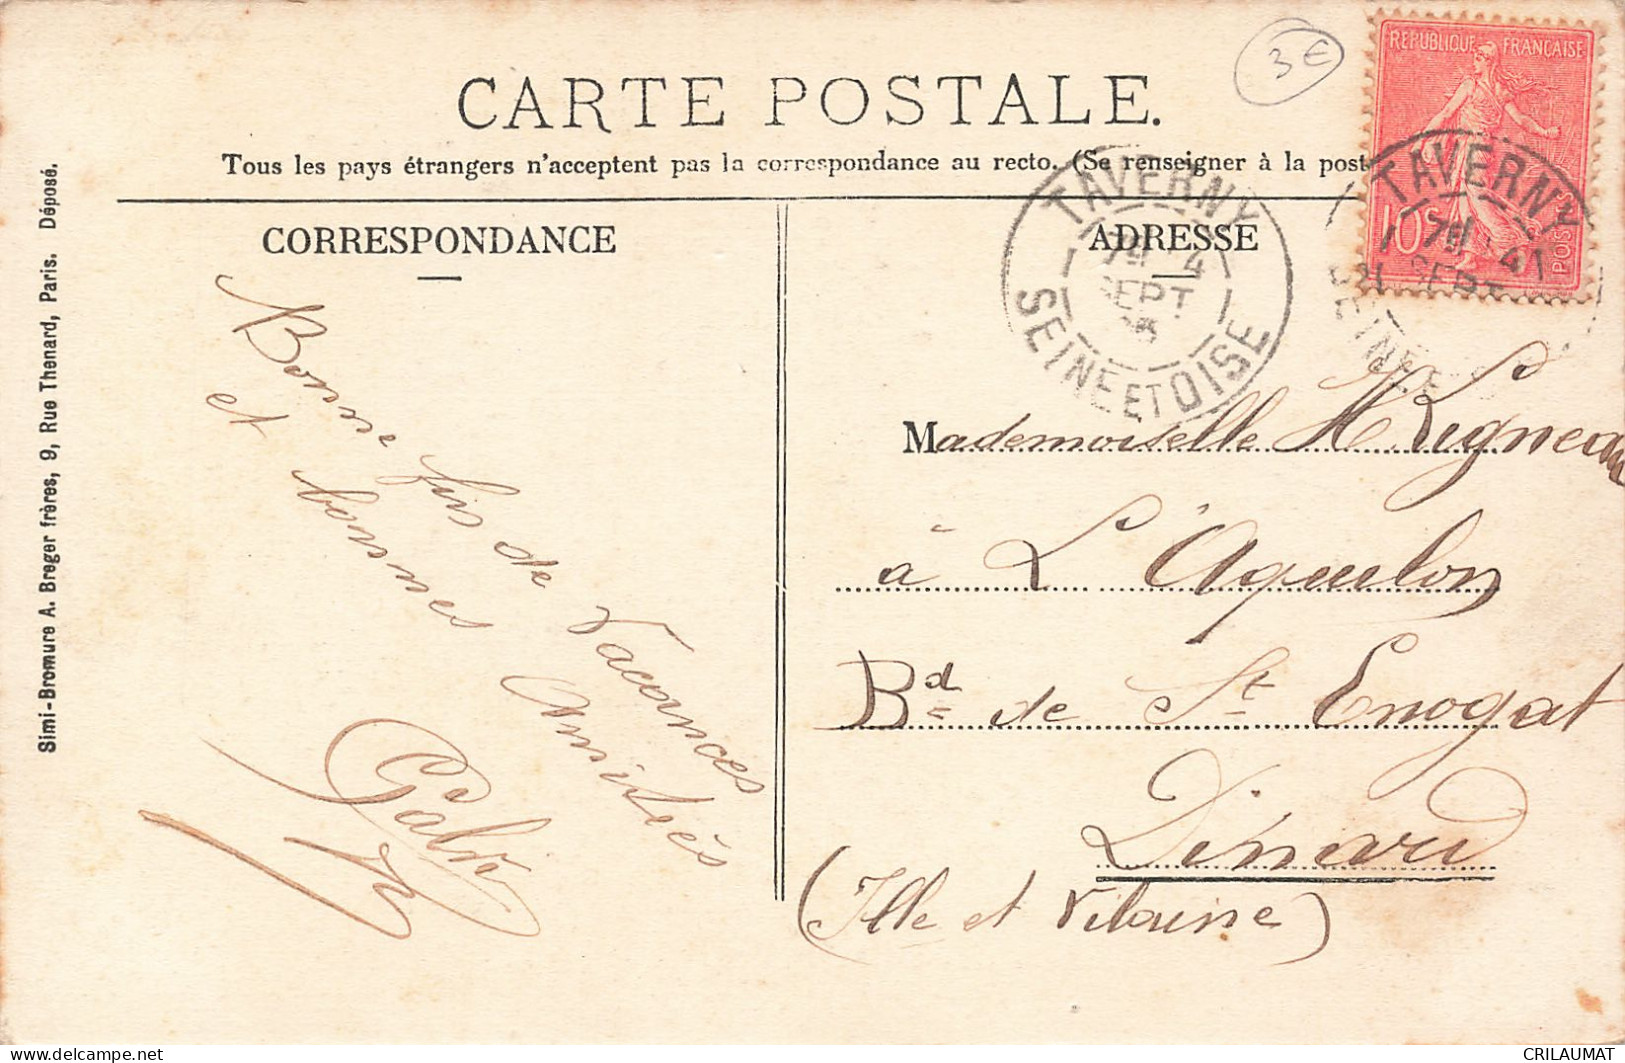 CARTE POSTALE.
Tous les pays étrangers n'acceptent pas la correspondance au recto. (Se renseigner à la post
3€
REPUBLIQUE FRANÇAISE
10c
POSTES
TAVERNY
SEPT
SEINE ET OISE
TAVERNY
SEPT
SEINE E
CORRESPONDANCE
Bonne fin de Vacances
et bonnes Amitiés
ADRESSE
Mademoiselle
à L'Aquilon
Bd de St Enogat
Dinard
(Ille et Vilaine)
Simi-Bromure A. Breger frères, 9, Rue Thenard, Paris. Déposé.
CRILAUMAT